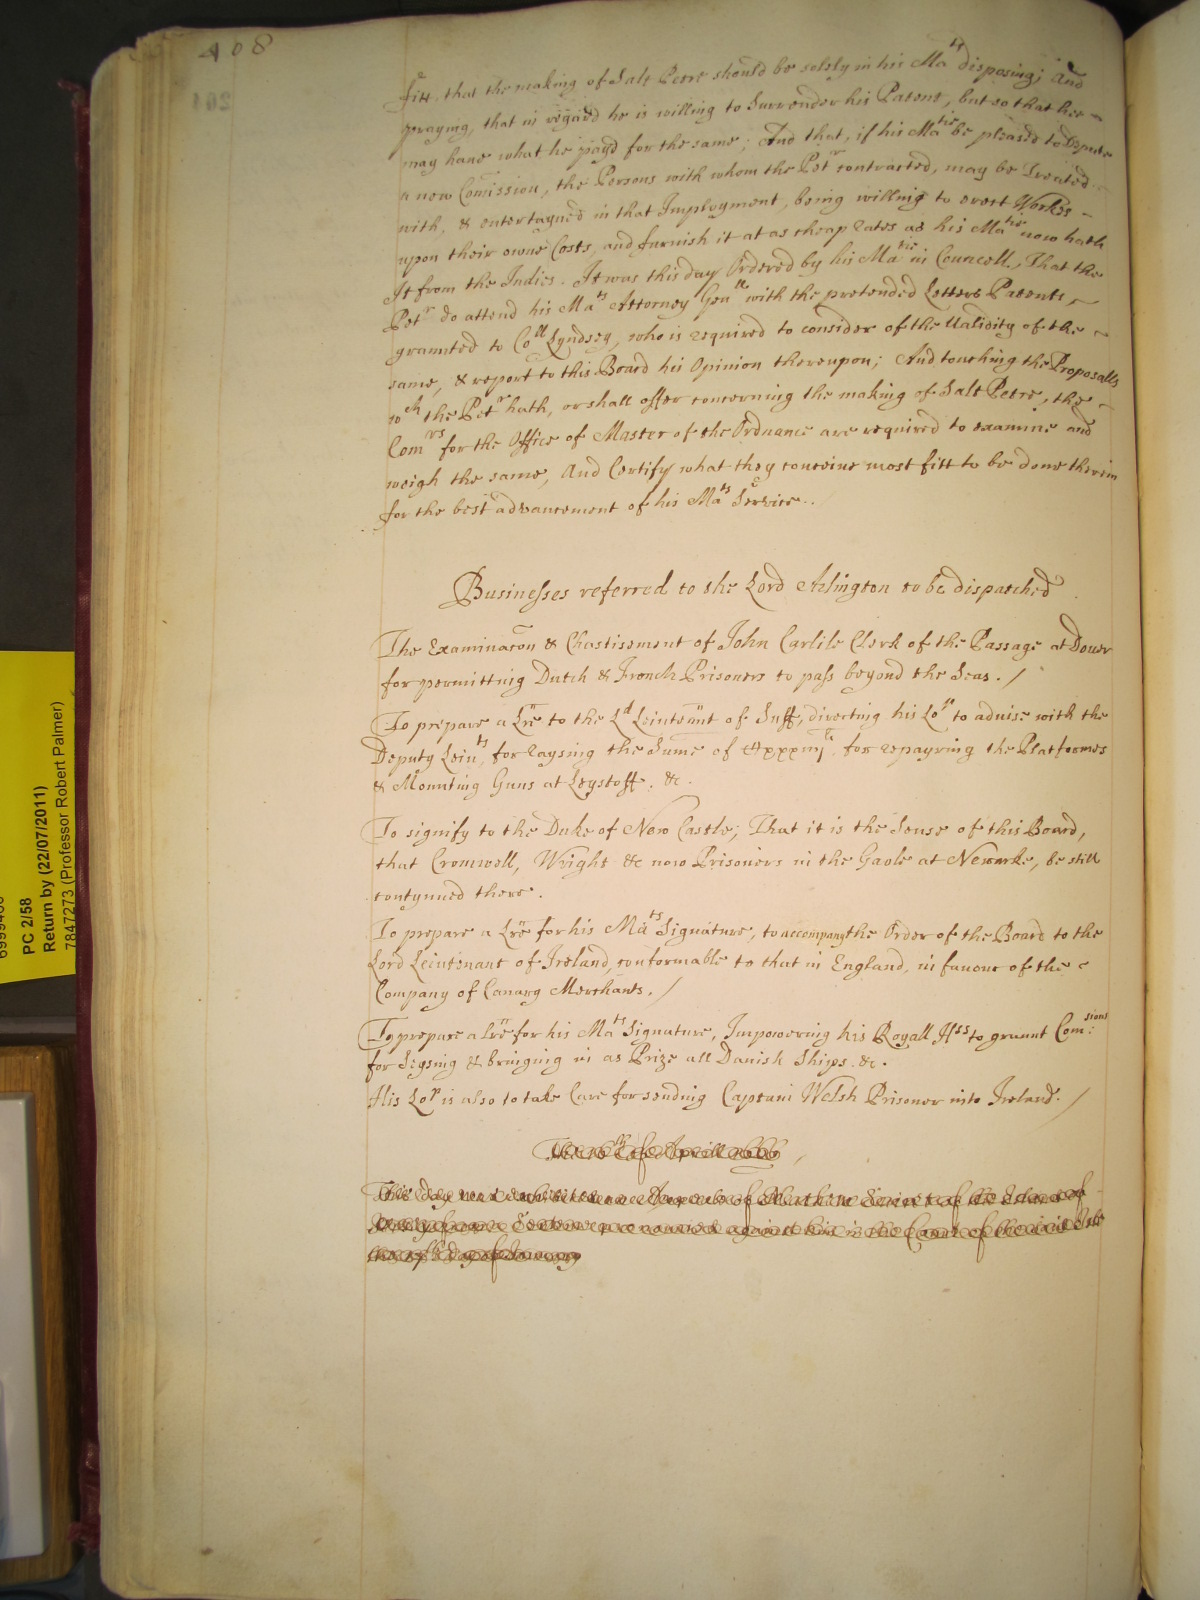 408
fitt, that the making of Salt Petre should be solely in his Ma.ts disposing; And
praying, that in regard he is willing to Surrender his Patent, but so that hee
may haue what he payd for the same; And that, if his Ma.tie be pleased to Depute
a new Com̃ission, the Persons with whom the Pet.r contracted, may be Treated
with, & entertayned in that Imployment, being willing to erect Workes
upon their owne Costs, and furnish it at as cheap rates as his Ma.tie now hath
It from the Indies. It was this day Ordered by his Ma.tie in Councell, That the
Pet.r do attend his Ma.ts Attorney Gen.ll with the pretended Letters Patents,
graunted to Co.ll Lyndsey, who is required to consider of the Ualidity of the
same, & report to this Board his Opinion thereupon; And touching the Proposalls
w.ch the Pet.r hath, or shall offer concerning the making of Salt Petre, the
Com.rs for the Office of Master of the Ordnance are required to examine and
weigh the same, And Certify what they conceiue most fitt to be done therein
for the best advancement of his Ma.ts Service.
Businesses referred to the Lord Arlington to be dispatched
The Examinac̃on & Chastisement of John Carlile Clerk of the Passage at Douer
for permitting Dutch & French Prisoners to pass beyond the Seas. /
To prepare a Lr̃e to the L.d Leiuten̄nt of Suff, directing his Lo.p to aduise with the
Deputy Leiu.ts for raysing the Sume of for repayring the Platformes
& Mounting Guns at Leystoff. &c.
To signify to the Duke of New Castle; That it is the Sense of this Board,
that Cromwell, Wright &c now Prisoners in the Gaole at Newarke, be still
contynued there.
To prepare a Lr̃e for his Ma.ts Signature, to accompany the Order of the Board to the
Lord Leiutenant of Ireland, conformable to that in England, in fauour of the
Company of Canary Merchants. /
To prepare a Lr̃e for his Ma.ts Signature, Impowering his Royall H.ss to graunt Com:sions
for Seysing & bringing in as Prize all Danish Ships. &c.
His Lo.p is also to take Care for sending Captain Welsh Prisoner into Ireland. /
of Aprill 1666
This day
day of January
PC 2/58
Return by (22/07/2011)
7847273 (Professor Robert Palmer)